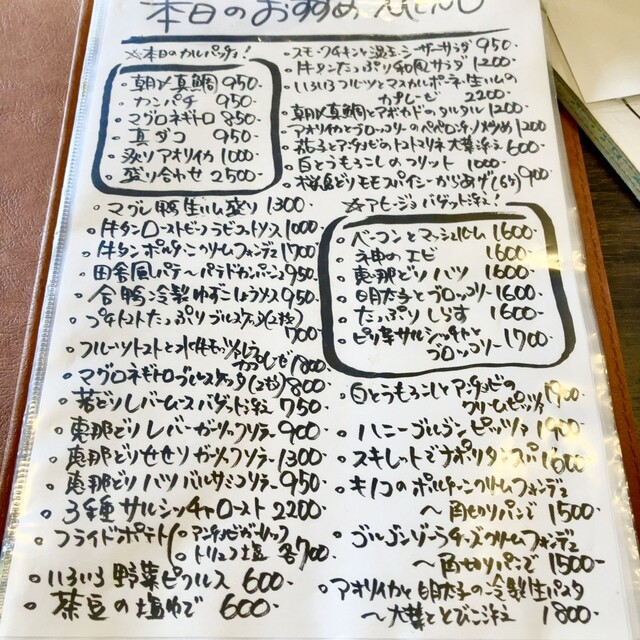 本日のおすすめメニュー
※本日のカルパッチョ!
・朝〆真鯛 950
・カンパチ 950-
・マグロネギトロ 850-
・真ダコ 950-
・炙りアオリイカ 1000
・盛り合わせ 2500-
・マグレ鴨生ハム盛り 1300
・牛タンローストビーフラビゴットソース 1000
・牛タンポルチーニクリームフォンデュ 1700
・田舎風パテ〜パテドカンパーニュ 950
・合鴨冷製ゆずこしょうソース 950
・プチトマトたっぷりブルスケッタ(2枚) 700
・フルーツトマトと水牛モッツァレラ カプレーゼ 1800
・マグロネギトロブルスケッタ(2枚) 800
・若どりレバームースバゲット添え 750
・恵那どりレバーガーリックソテー 900
・恵那どりせせりガーリックソテー 1300
・恵那どりハツバルサミコソテー 950
・3種サルシッチャロースト 2200
・フライドポテト(・アンチョビガーリック
・トリュフ塩 各700
・いろいろ野菜ピクルス 600-
・茶豆の塩ゆで 600-
・スモークチキンと温玉シーザーサラダ 950
・牛タンたっぷり和風サラダ 1200
・いろいろフルーツとマスカルポーネ生ハムの
カプレーゼ 2200
・朝〆真鯛とアボカドのタルタル 1200
・アオリイカとブロッコリーのペペロンチーノ炒め 1200
・茄子とアンチョビのトマトマリネ大葉添え 600
・白とうもろこしのフリット 1000
・桜島どりモモスパイシーからあげ(6ケ) 900
※アヒージョバゲット添え!
・ベーコンとマッシュルーム 1600
・天神のエビ 1600-
・恵那どりハツ 1600-
・明太子とブロッコリー 1600-
・たっぷりしらす 1600-
・ピリ辛サルシッチャと
ブロッコリー 1700
・白とうもろこしとアンチョビの
クリームピッツァ 1900
・ハニーゴルゴンピッツァ 1900
・スキレットでナポリタンスパ 1600
・キノコのポルチーニクリームフォンデュ
〜角切りパンで 1500
・ゴルゴンゾーラチーズクリームフォンデュ
〜角切りパンで 1500
・アオリイカと明太子の冷製生パスタ
〜大葉ととびこ添え 1800